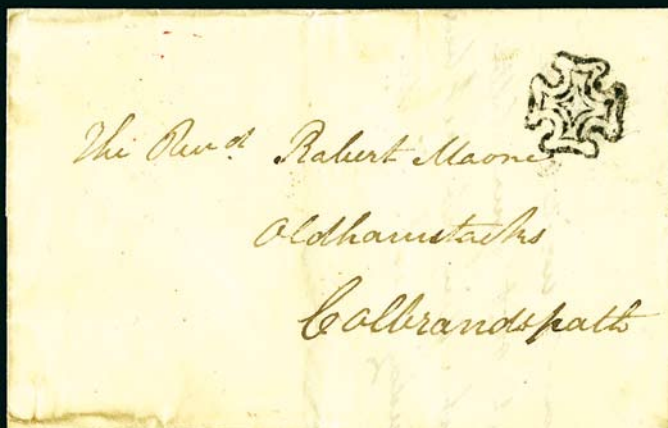 The Revd. Robert Moore
Oldhamstacks
Colbrandspath